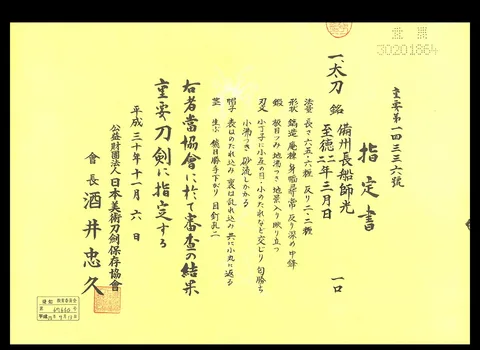 重要
30201864
重要第一四三三六號
指定書
一、太刀 銘 備州長船師光
至徳二年三月日
一口
法量 長さ六五・六糎 反り二・二糎
形状 鎬造 庵棟 身幅尋常 反り深め 中鋒
鍛 板目つみ 地沸つき 地景入り 映り立つ
刃文 小丁子に小互の目・小のたれなど交じり 匂勝ち
小沸つき 砂流しかかる
帽子 表はのたれ込み 裏は乱れ込み 共に小丸に返る
茎 生ぶ 鑢目勝手下がり 目釘孔二
右者當協會に於て審査の結果
重要刀剣に指定する
平成三十年十一月六日
公益財団法人日本美術刀剣保存協會
會長 酒井忠久